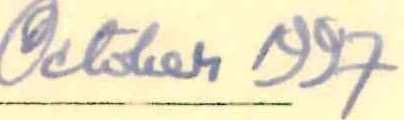 October 1997